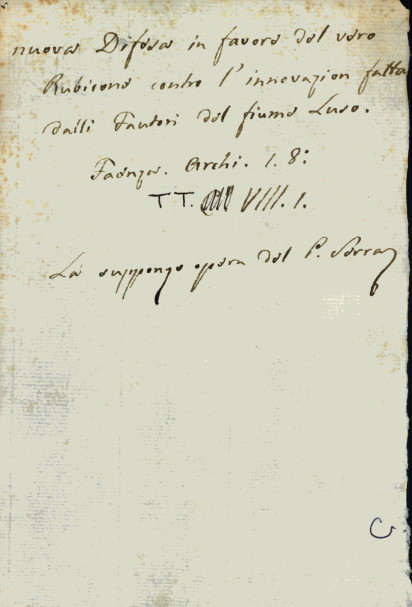 nuova Difesa in favore del vero
Rubicone contro l'innovazion fatta
dalli Fautori del fiume Luso.
Faenza. Archi. 1. 8:
TT. VIII. 1.
La suppongo opera del P. Serra
C